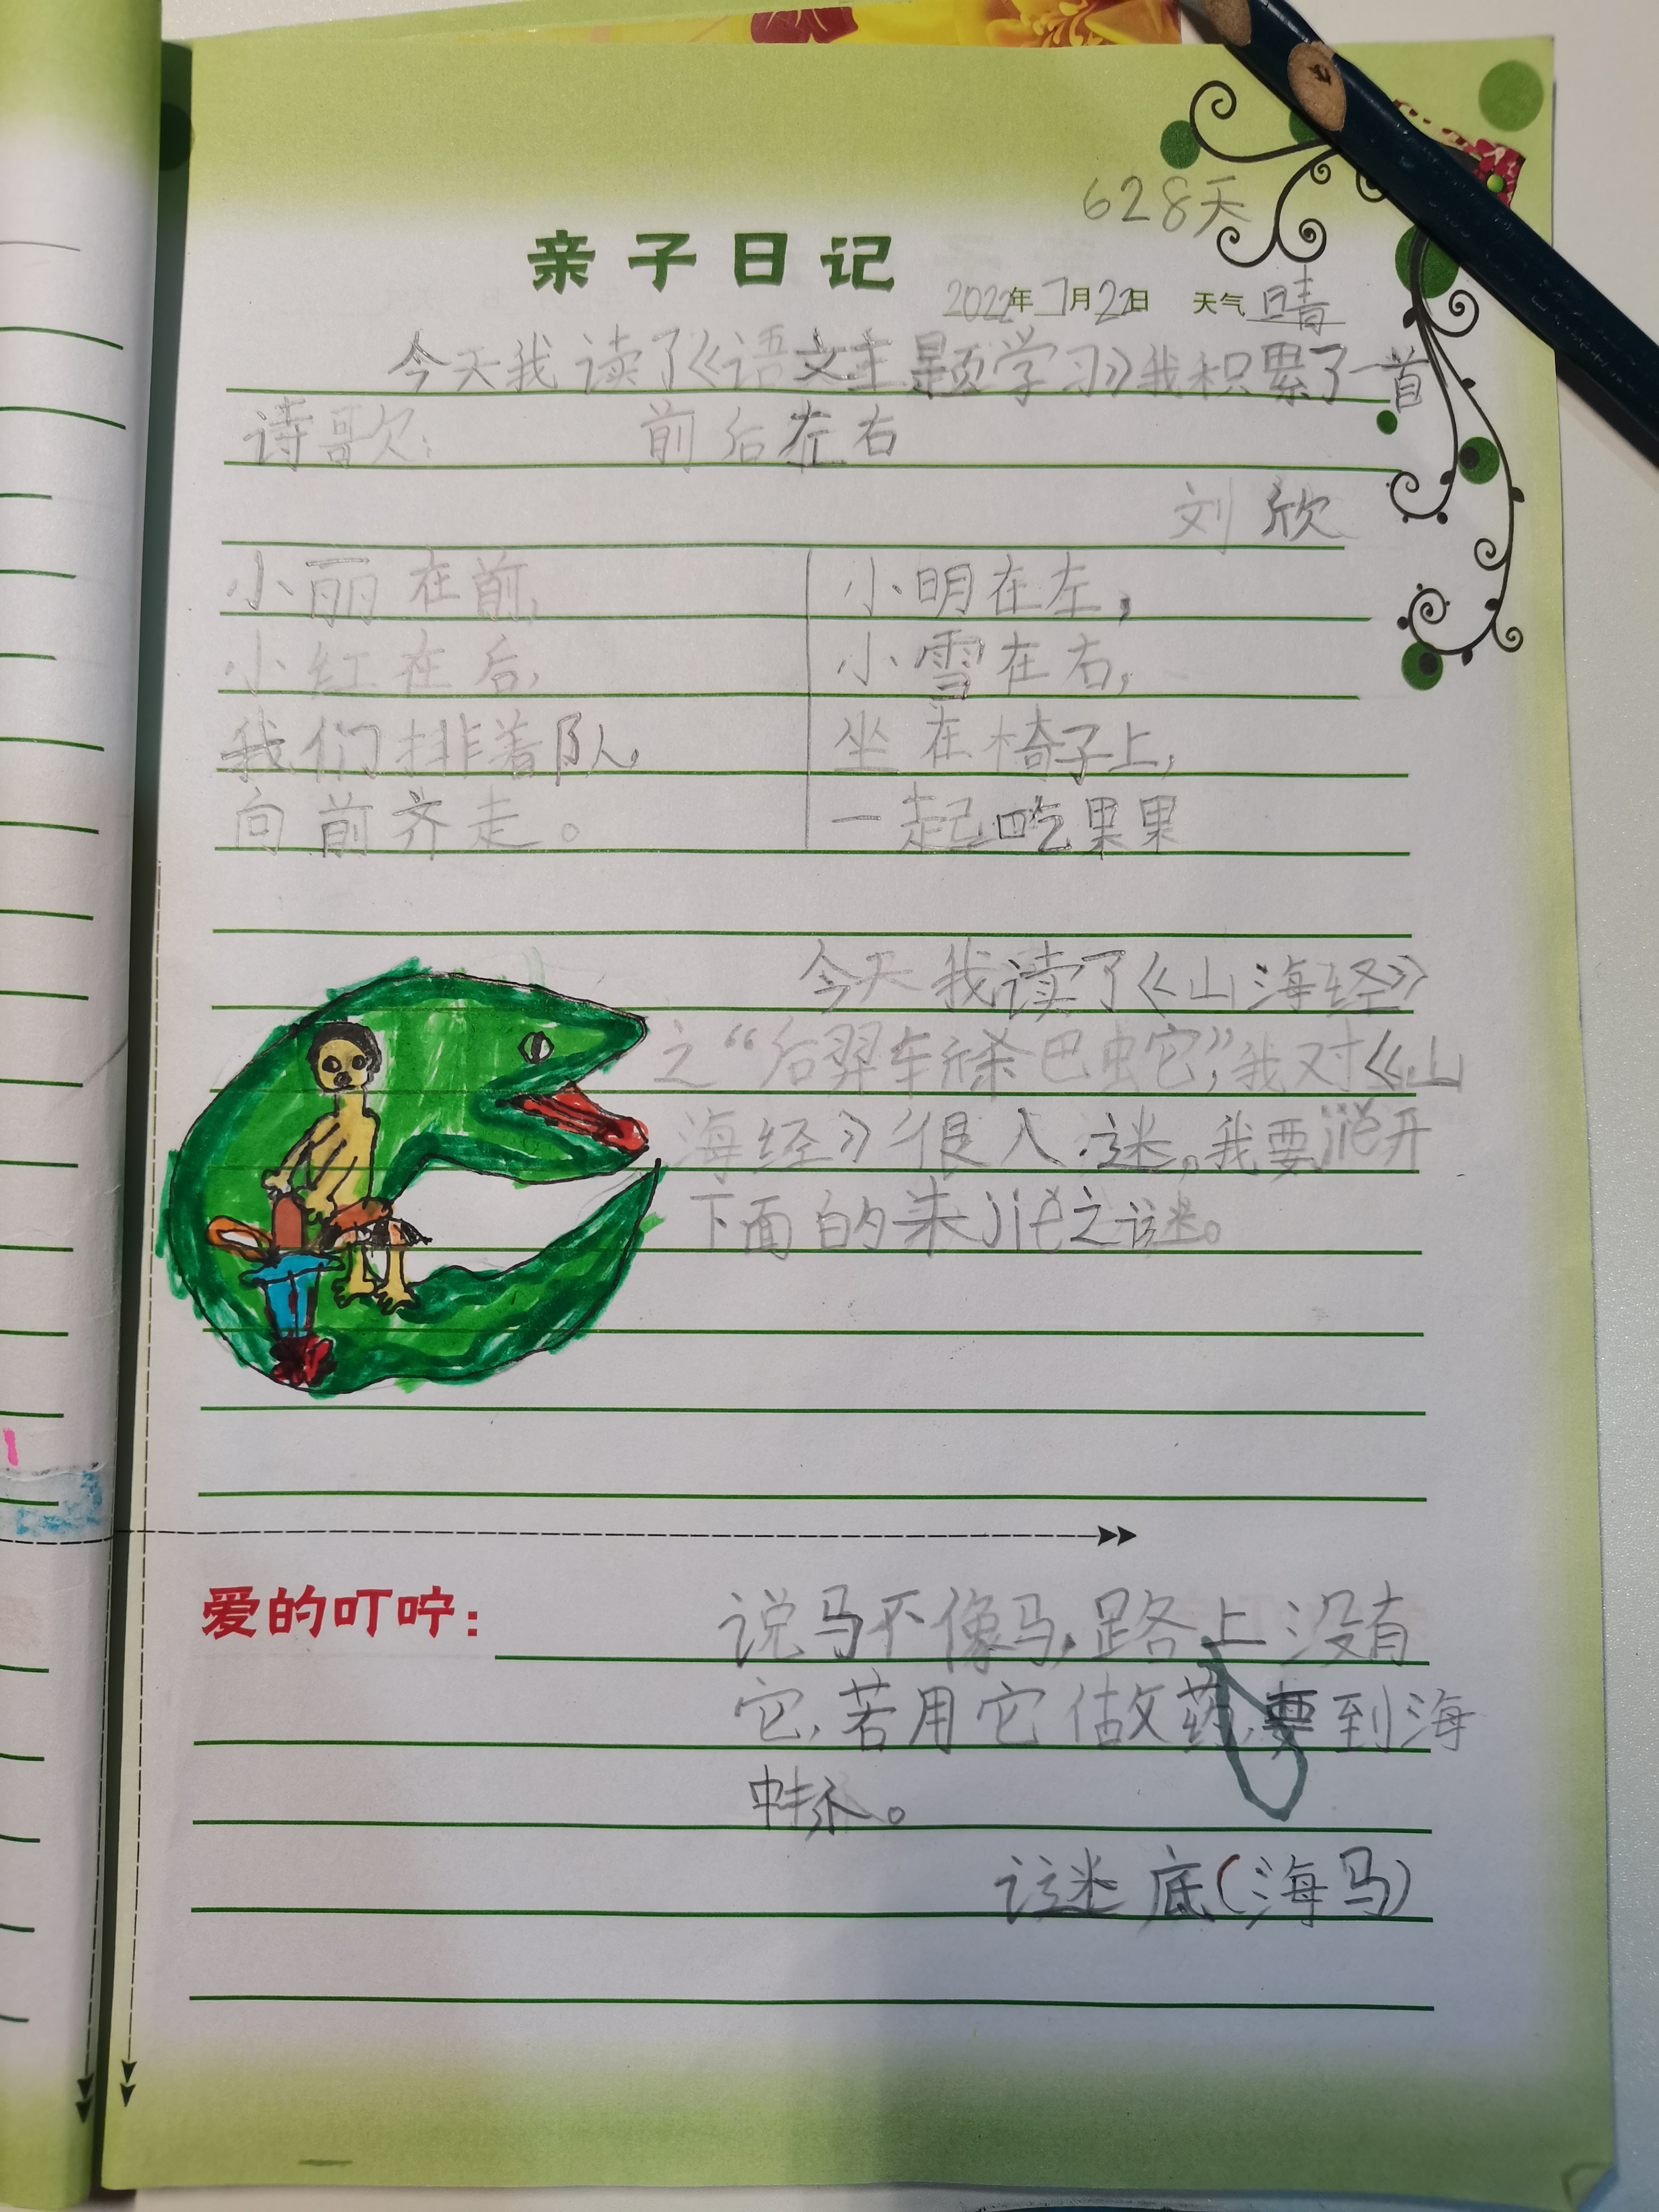 628天
亲子日记
2022年7月22日 天气 晴
今天我读了《语文主题学习》我积累了一首
诗歌: 前后左右
刘欣
小丽在前,
小红在后,
我们排着队,
向前齐走。
小明在左,
小雪在右,
坐在椅子上,
一起吃果果
今天我读了《山海经》
之“后羿车斩杀巴蛇”,我对《山
海经》很入迷。我要jiē开
下面的未jiě之谜。
爱的叮咛:
说马不像马,路上没有
它,若用它做药,要到海
中找。
谜底(海马)